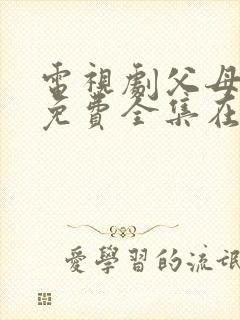 電視劇父母
免費全集在
愛學習的流氓